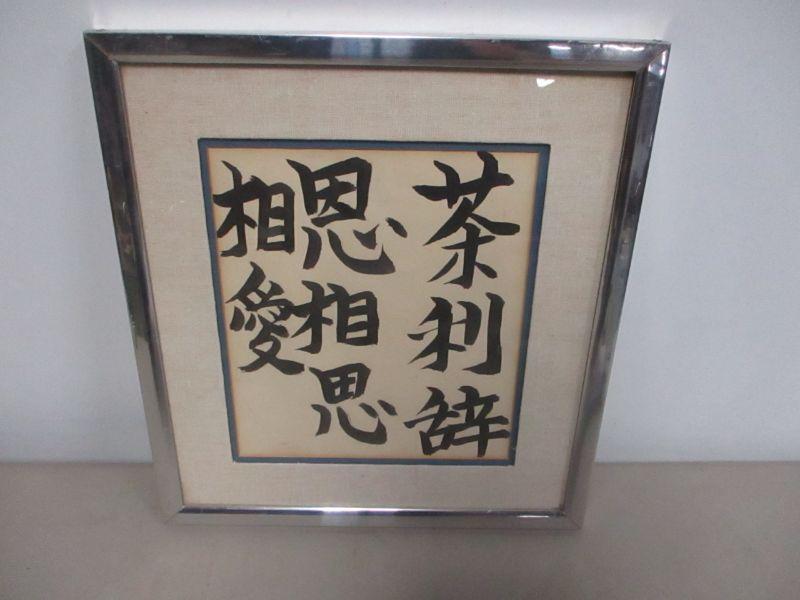 茶利辞
恩相思
相愛